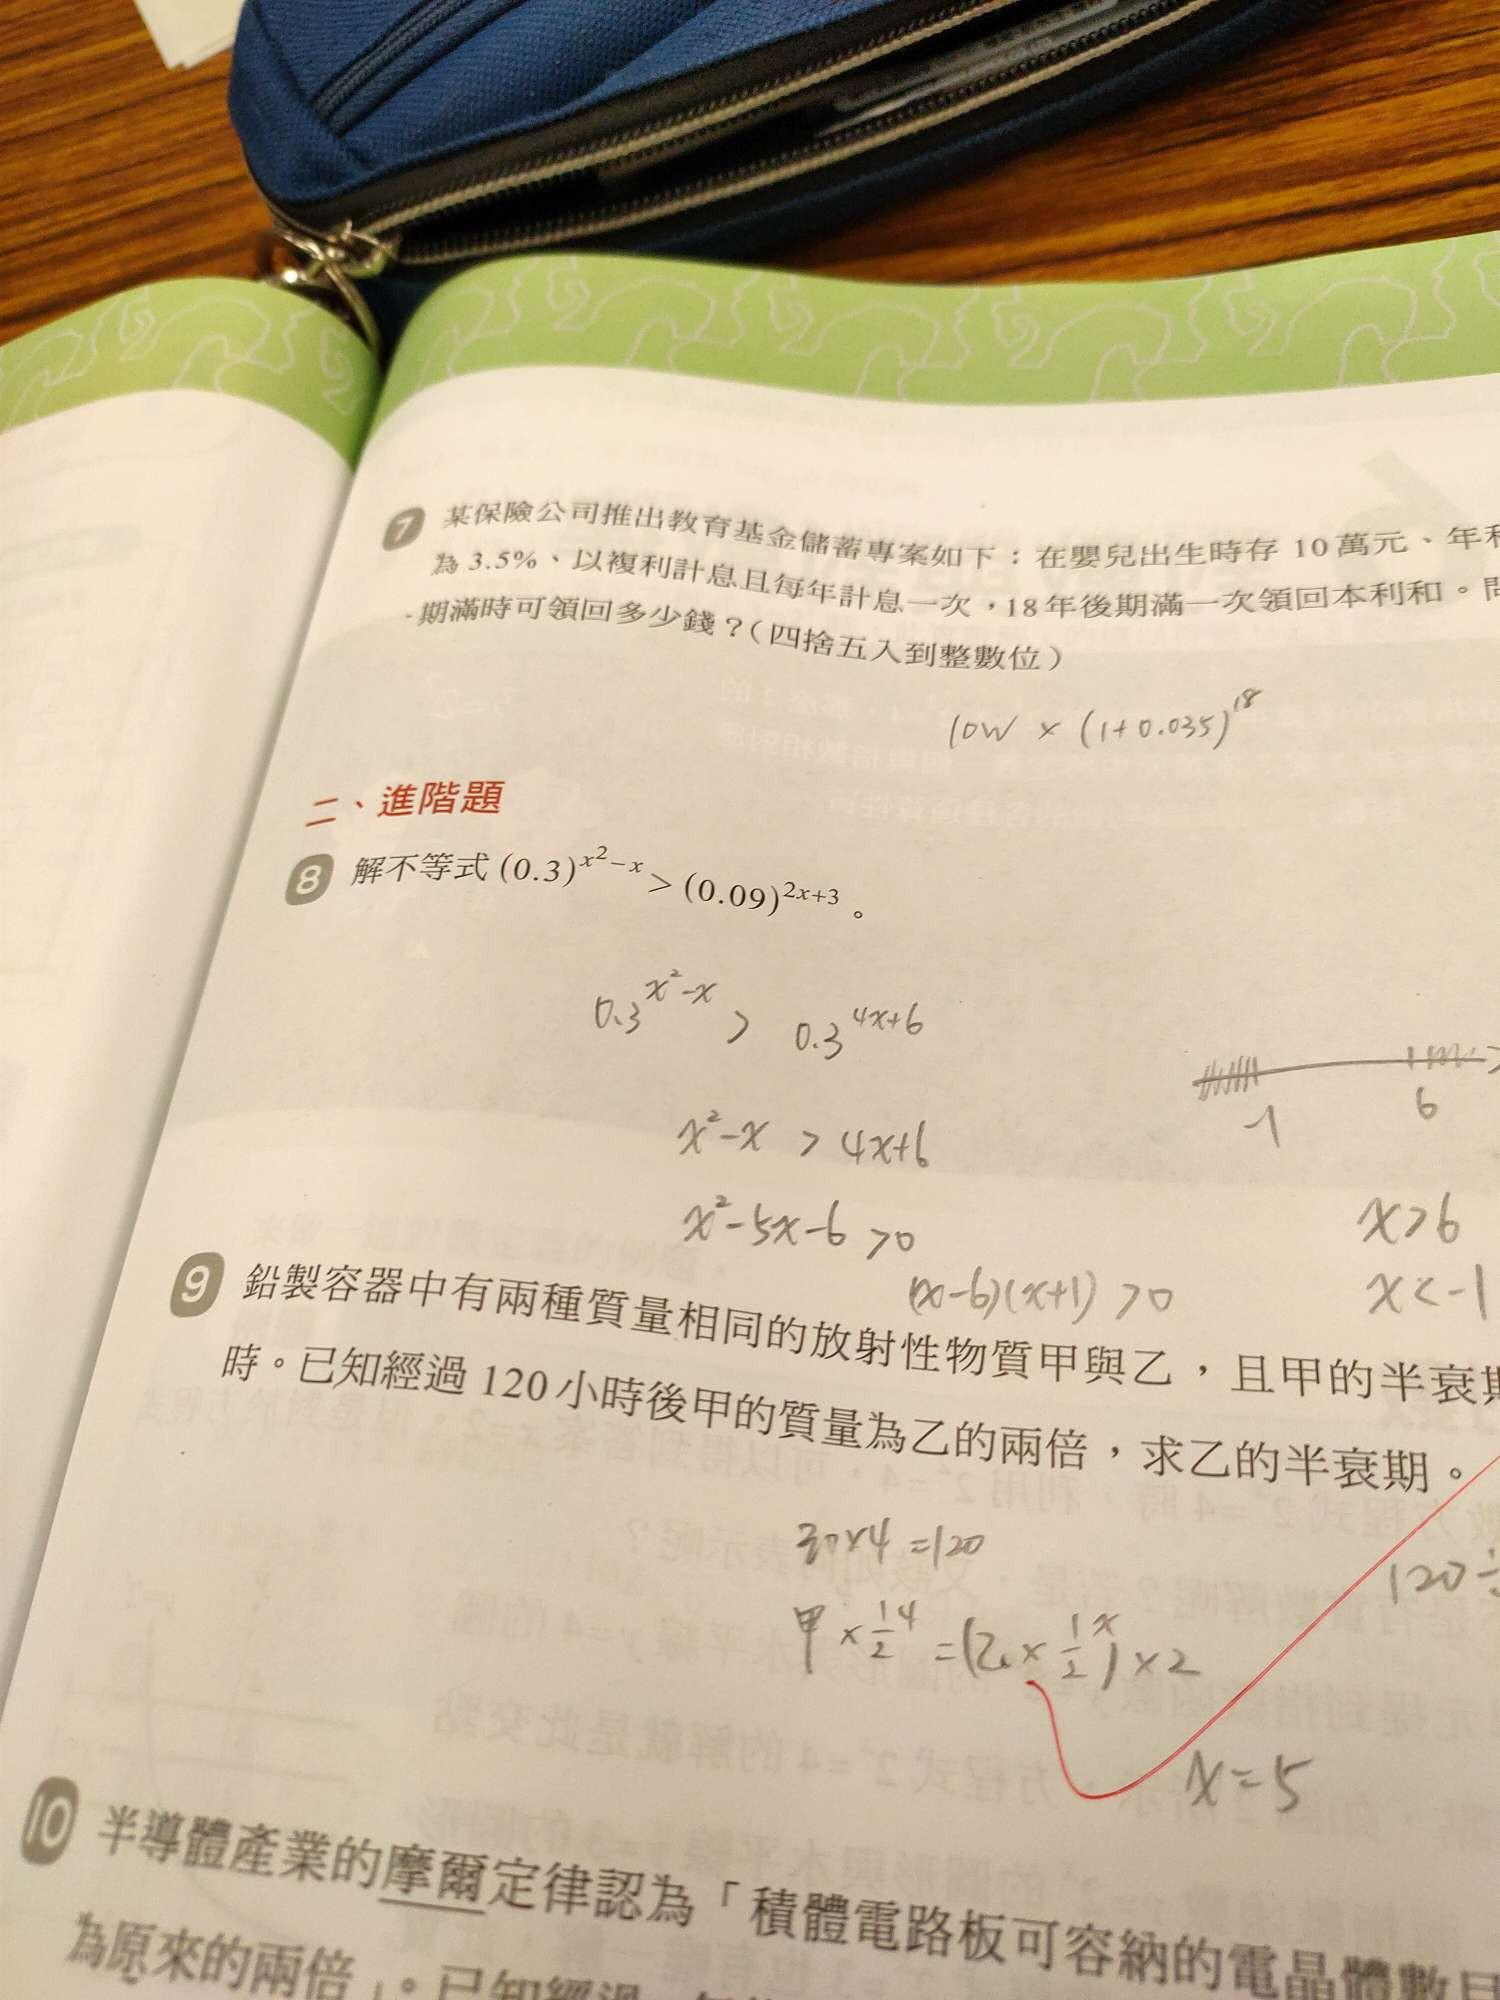 7 某保險公司推出教育基金儲蓄專案如下：在嬰兒出生時存 10 萬元、年利
為 3.5%、以複利計息且每年計息一次，18 年後期滿一次領回本利和。問
期滿時可領回多少錢？（四捨五入到整數位）
10W × (1+0.035)^18
二、進階題
8 解不等式 (0.3)^{x²−x} > (0.09)^{2x+3}。
0.3^{x²-x} > 0.3^{4x+6}
-1 6
x²-x > 4x+6
x²-5x-6 >0
x>6
(x-6)(x+1) >0
x<-1
9 鉛製容器中有兩種質量相同的放射性物質甲與乙，且甲的半衰期
時。已知經過 120 小時後甲的質量為乙的兩倍，求乙的半衰期。
30×4=120
120÷
甲×1/2^4=(乙×1/2^x)×2
x=5
10 半導體產業的摩爾定律認為「積體電路板可容納的電晶體數目
為原來的兩倍」。已知經過